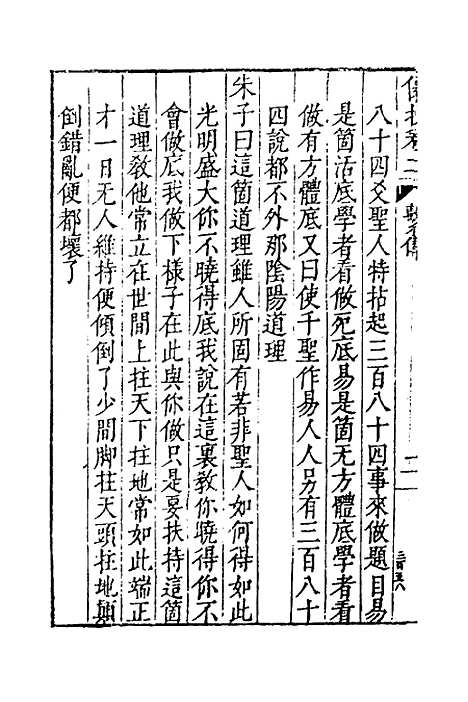 八十四爻聖人特拈起三百八十四事來做題目易
是箇活底學者看做死底易是箇无方體底學者看
做有方體底又曰使千聖作易人人另有三百八十
四說都不外那陰陽道理
朱子曰這箇道理雖人所固有若非聖人如何得如此
光明盛大你不曉得底我說在這裏教你曉得你不
會做底我做下樣子在此與你做只是要扶持這箇
道理教他常立在世間上拄天下拄地常如此端正
才一日无人維持便傾倒了少間脚拄天頭拄地顛
倒錯亂便都壞了